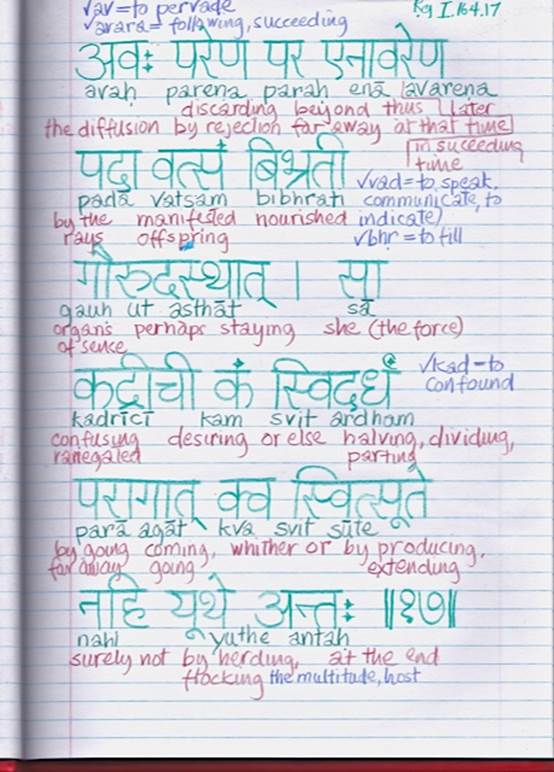 √av=to pervade
Rg I.164.17
√avara= following, succeeding
अवः परेण पर एनावरेण
avaḥ parena parah enā avarena
discarding beyond thus later
the diffusion by rejection far away at that time
in suceeding time
पदा वत्सं बिभ्रती
√vad=to speak,
padā vatsam bibhrati communicate, to
by the manifested nourished indicate)
rays offspring √bhṛ=to fill
गौरुदस्थात् । सा
gauh ut asthāt sā
organs perhaps staying she (the force)
of sence
कद्रीची कं स्विदर्धं
√kad=to confound
kadrīcī kam svit ardham
confusing desiring or else halving, dividing,
parting
परागात् क्व स्वित्सूते
parā agāt kva svit sūte
by going coming, whither or by producing,
far away going extending
नहि यूथे अन्तः ॥१७॥
nahi yuthe antah
surely not by herding, at the end
flocking the multitude, host